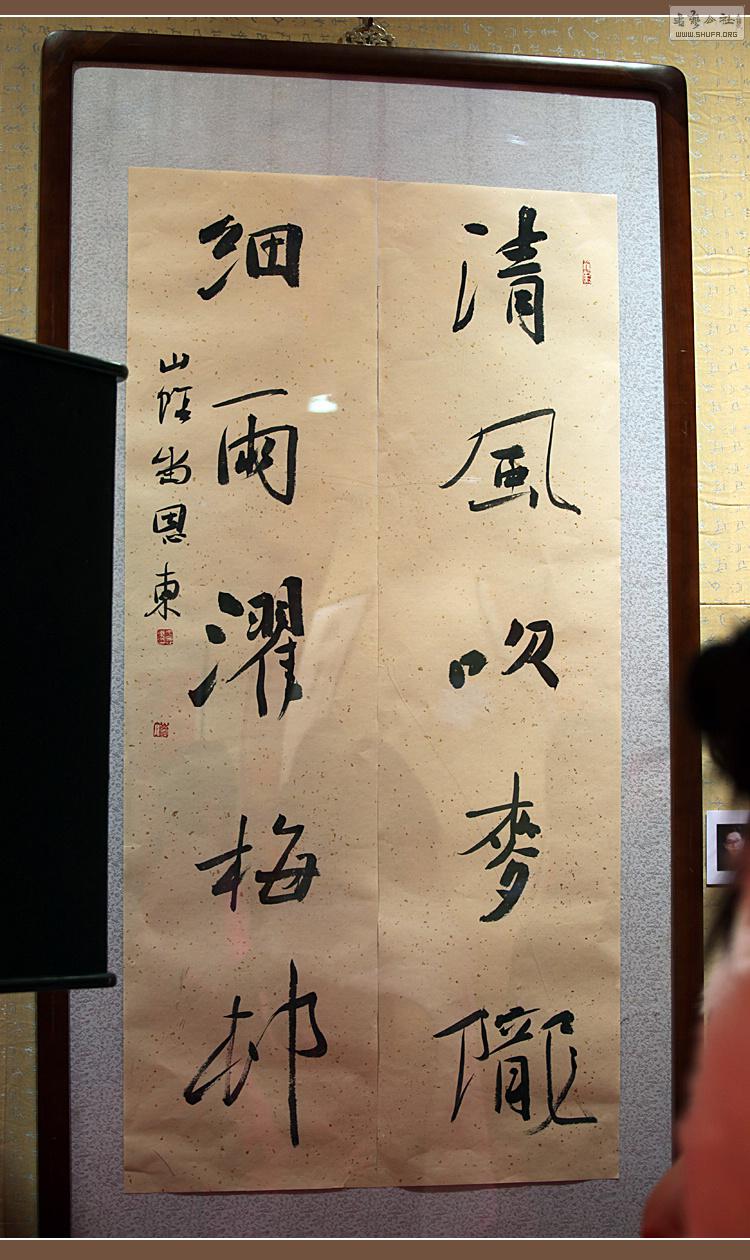 清風吹麥隴
細雨濯梅邨
尚恩東
書藝公社
WWW.SHUFA.ORG